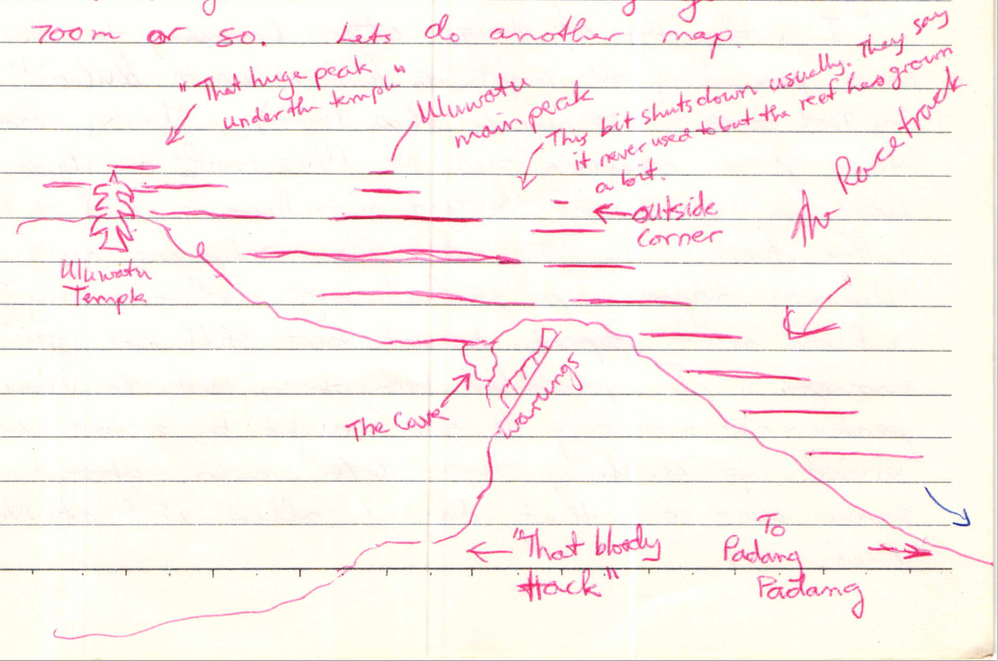 700m or so. Lets do another map.
"That huge peak
under the temple"
Uluwatu
main peak
This bit shuts down usually. They say
it never used to but the reef has grown
a bit.
The Racetrack
outside
corner
Uluwatu
Temple
The Cave
warungs
"That bloody
track"
To
Padang
Padang